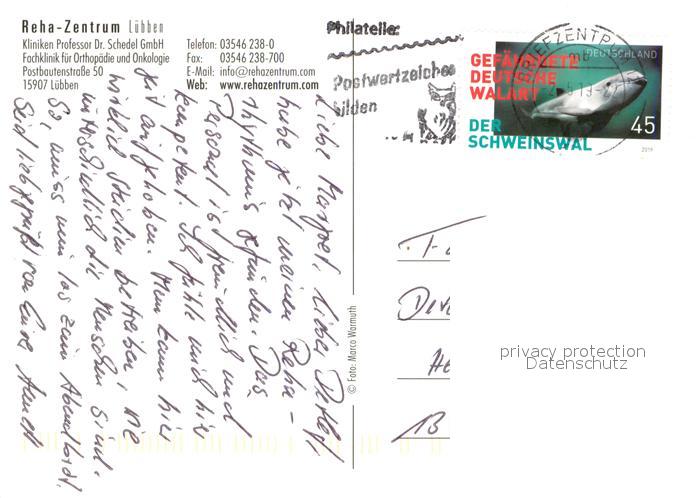 Reha-Zentrum Lübben
Kliniken Professor Dr. Schedel GmbH
Fachklinik für Orthopädie und Onkologie
Postbautenstraße 50
15907 Lübben
Telefon: 03546 238-0
Fax: 03546 238-700
E-Mail: info@rehazentrum.com
Web: www.rehazentrum.com
Philatelie:
Postwertzeichen
bilden
BRIEFZENTRUM
GEFÄHRDETE
DEUTSCHE
WALART
DER
SCHWEINSWAL
DEUTSCHLAND
45
2019
Liebe Margret, lieber Detlef
habe jetzt meinen Reha-
rhythmus gefunden. Das
Personal ist freundlich und
kompetent. Ich fühle mich hier
gut aufgehoben. Man kann hier
wirklich Studien betreiben, wie
unterschiedlich die Menschen sind.
So, muss nun los zum Abendbrot.
Seid lieb gegrüßt von Eurer
© Foto: Marco Warmuth
privacy protection
Datenschutz